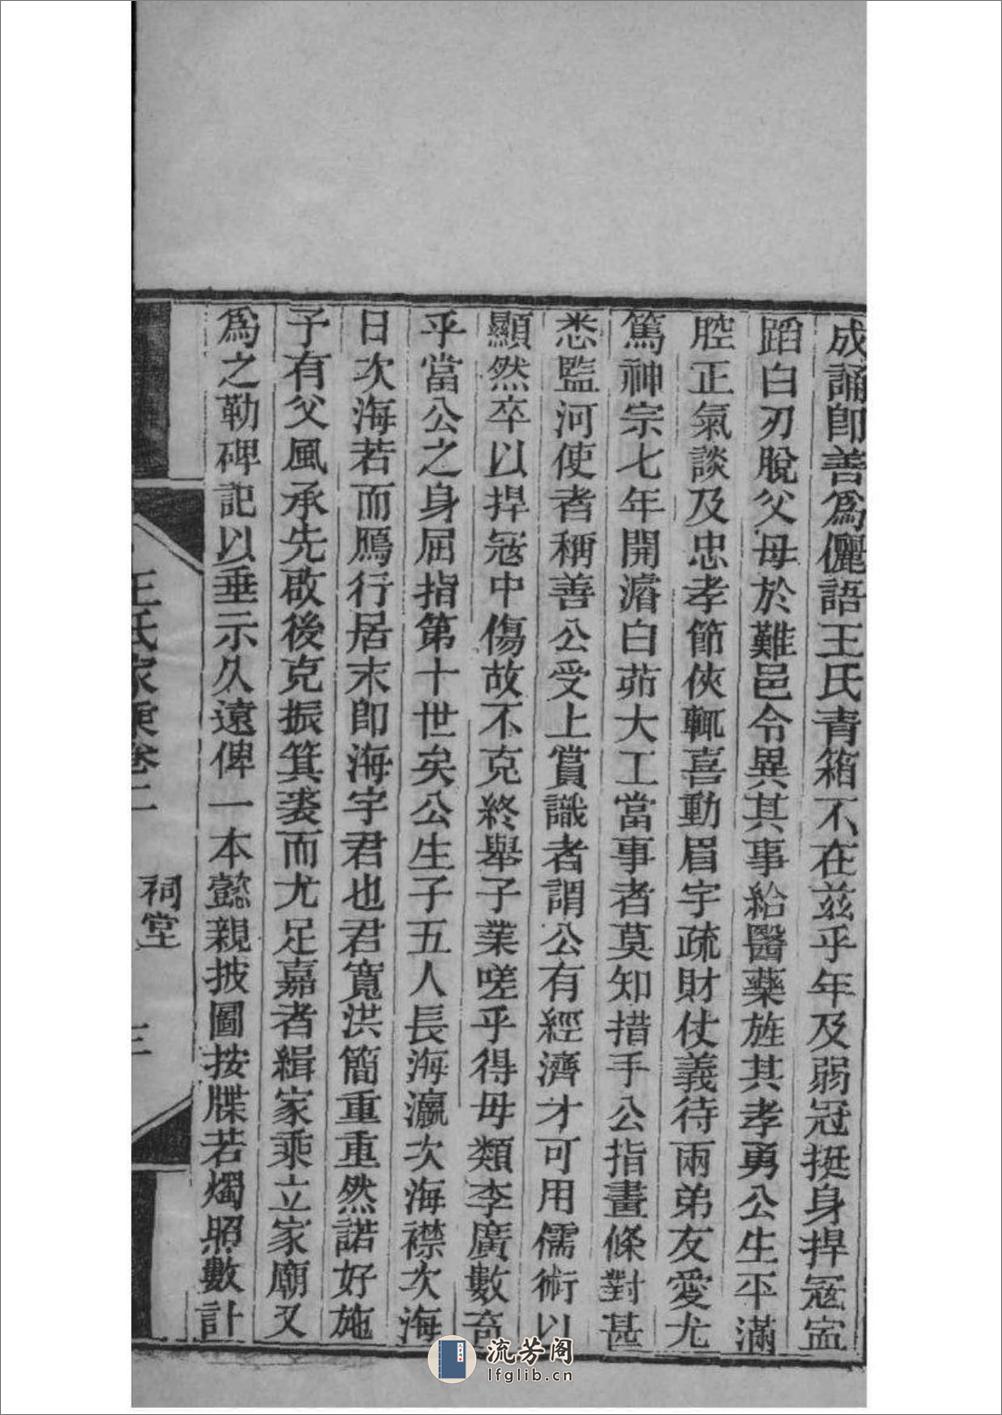 成誦卽善爲儷語王氏青箱不在茲乎年及弱冠挺身捍冦
蹈白刃脫父母於難邑令異其事給醫藥旌其孝勇公生平滿
腔正氣談及忠孝節俠輒喜動眉宇疏財仗義待兩弟友愛尤
篤神宗七年開濬白茆大工當事者莫知措手公指畫條對甚
悉監河使者稱善公受上賞識者謂公有經濟才可用儒術以
顯然卒以捍冦中傷故不克終舉子業嗟乎得毋類李廣數奇
乎當公之身屈指第十世矣公生子五人長海瀛次海襟次海
日次海若而鴈行居末卽海宇君也君寬洪簡重重然諾好施
予有父風承先啟後克振箕裘而尤足嘉者緝家乘立家廟又
爲之勒碑記以垂示久遠俾一本懿親披圖按牒若燭照數計
王氏家乘卷二 祠堂 三
流芳阁
lfglib.cn